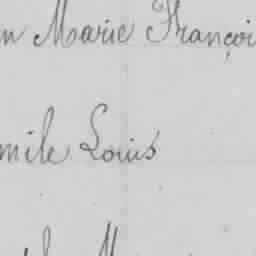 n Marie Françoi
mile Louis